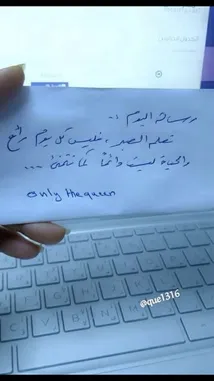 رسالة اليوم :
تعلم الصبر ، فليس كل يوم رائع
والحياة ليست دائماً كما نتمنى ...
only the queen
@que1316